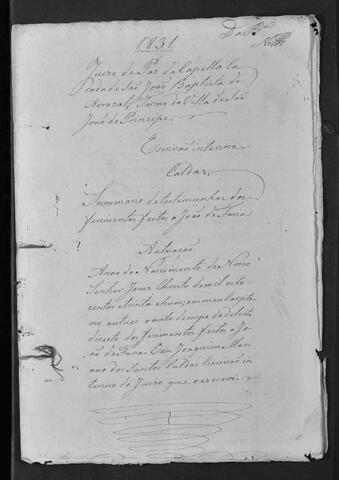 1831
Juizo de Paz da Capella Cu
rada de São João Baptista do
Arrozal, Termo da Villa de São
João do Principe.
Escrivão interino
Caldas
Summario de testemunhas dos
ferimentos feitos a João de Faria
Autuação
Anno do Nascimento de Nosso
Senhor Jesus Christo de mil oito
centos e trinta e hum, em meu carto
rio autuei o auto de corpo de delicto
directo dos ferimentos feitos a Jo
ão de Faria. Eu Joaquim Mari
ano dos Santos Caldas Escrivão in
terino do Juizo que o escrevi.